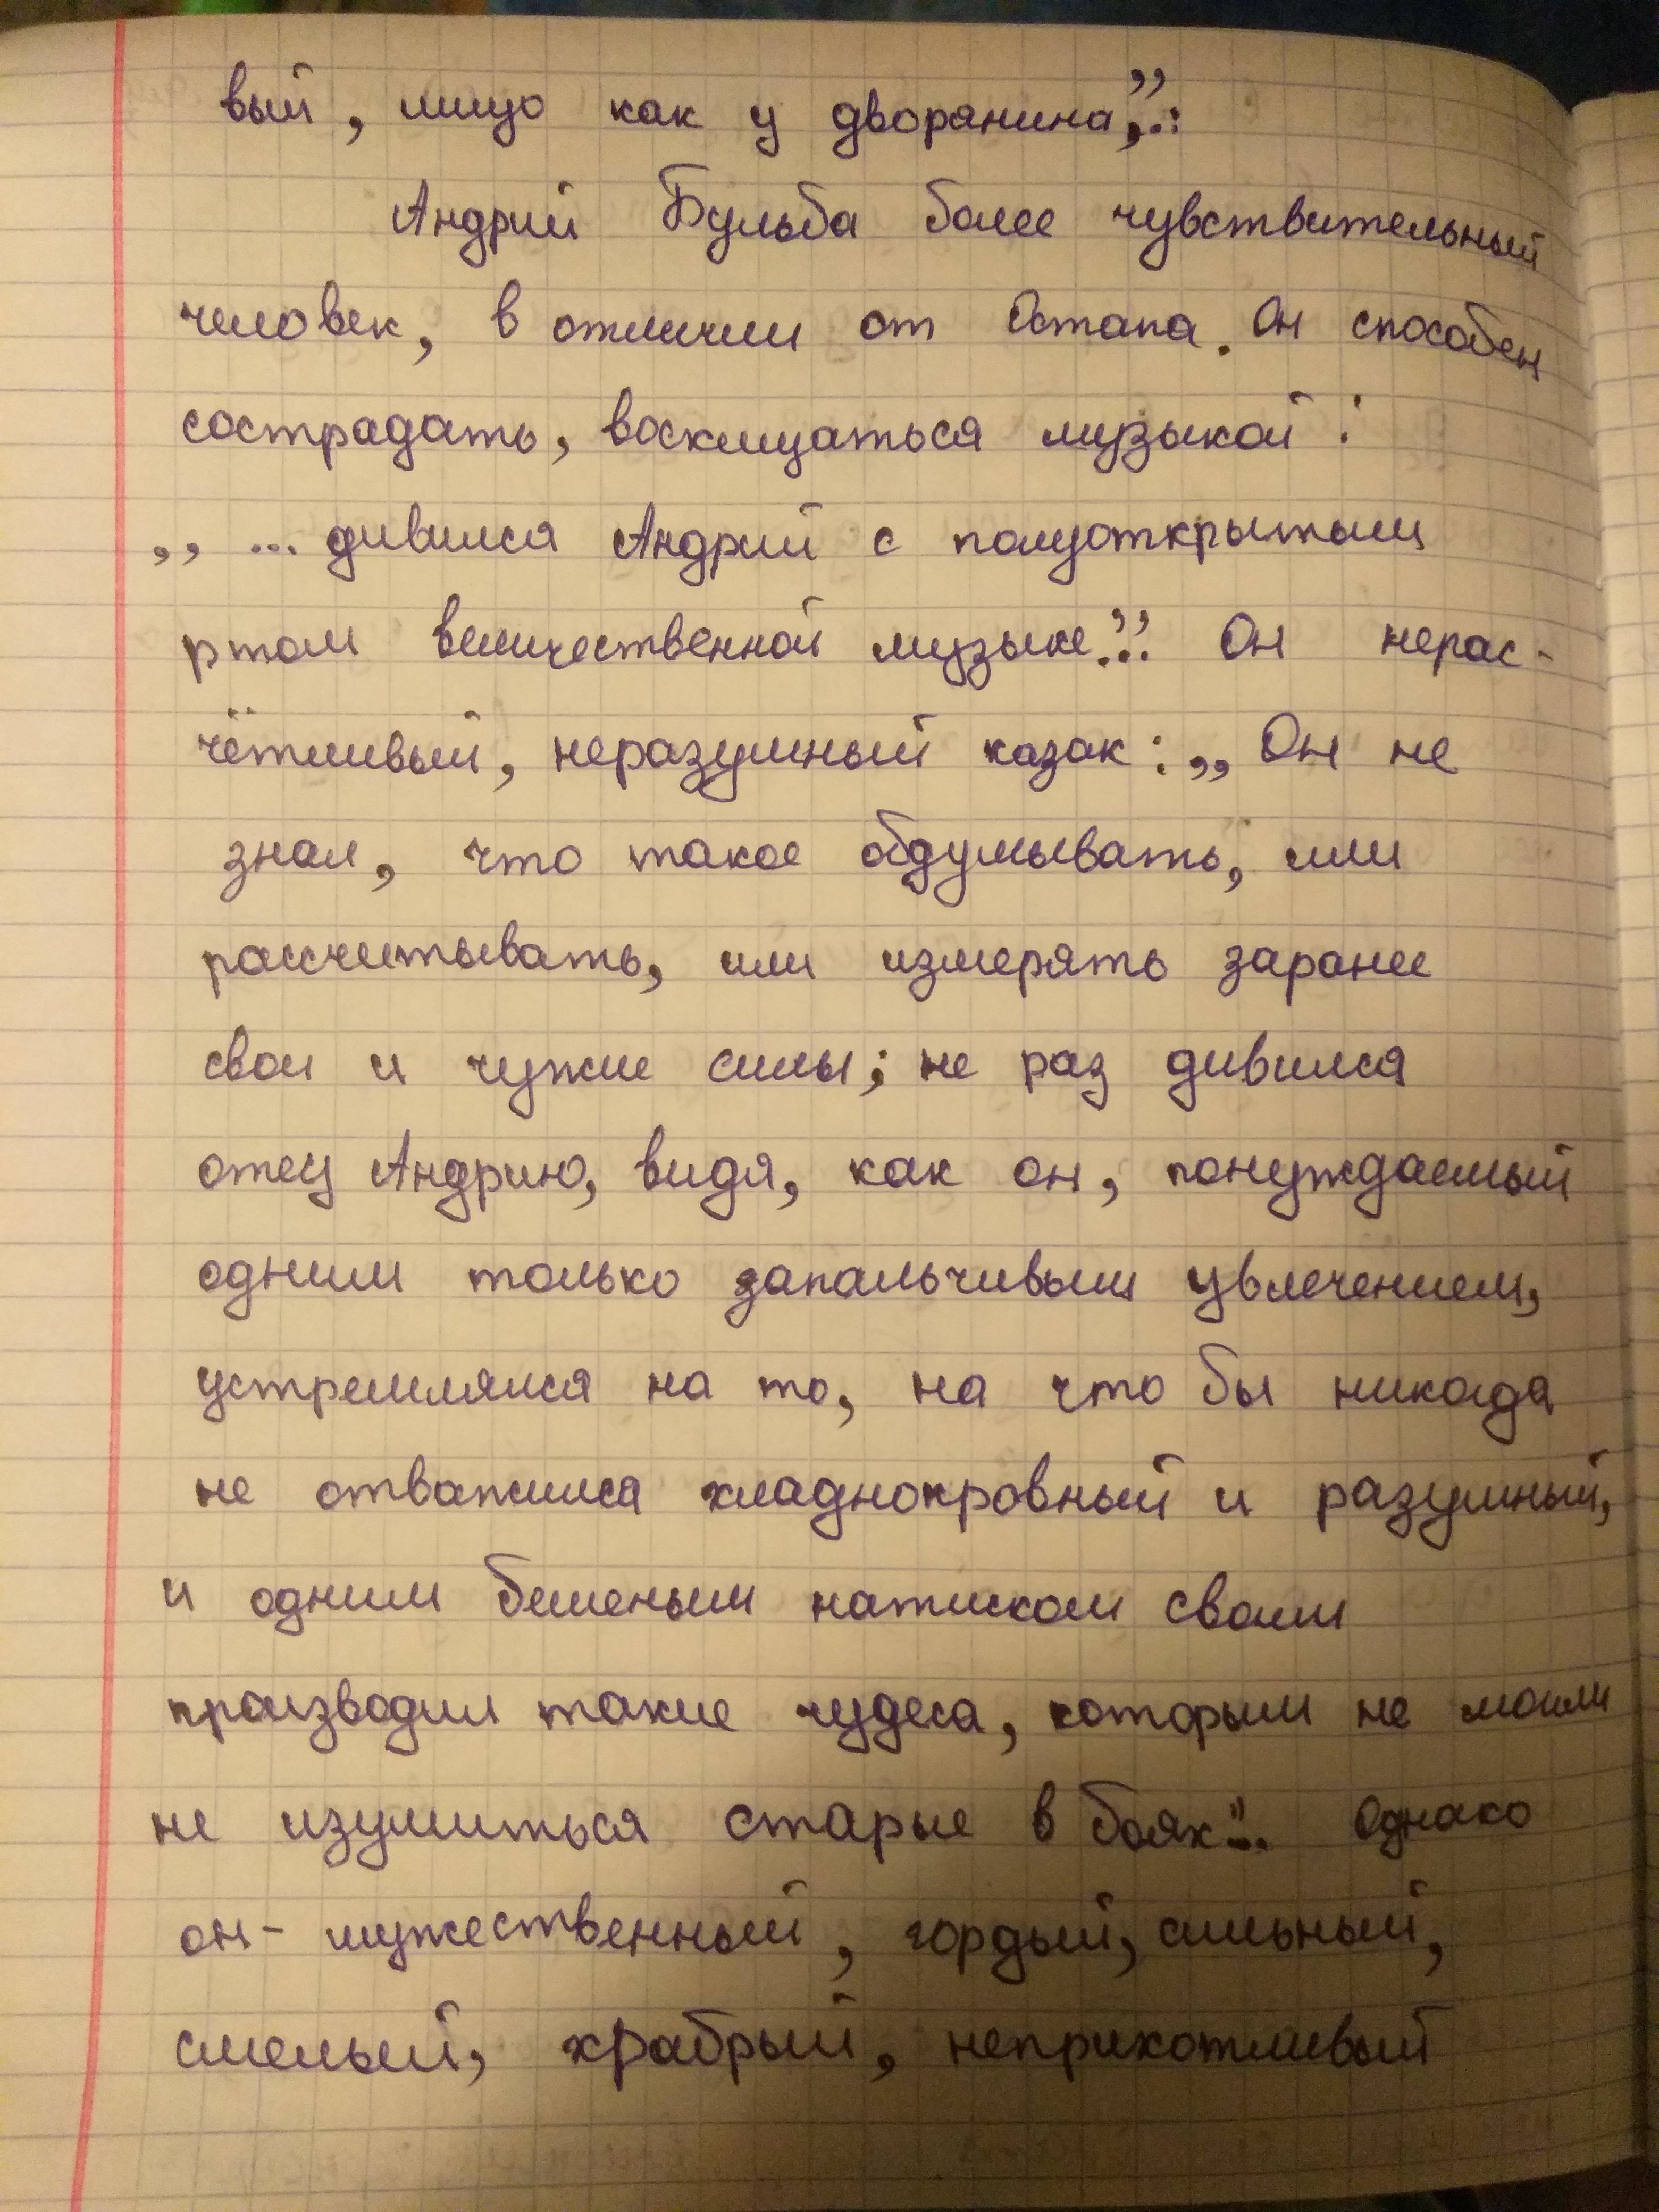 вый, лицо как у дворянина,”.:
Андрий Бульба более чувствительный
человек, в отличии от Остапа. Он способен
сострадать, восхищаться музыкой:
,, ... дивился Андрий с полуоткрытым
ртом величественной музыке...” Он нерас-
чётливый, неразумный казак: ,, Он не
знал, что такое обдумывать, или
рассчитывать, или измерять заранее
свои и чужие силы; не раз дивился
отец Андрию, видя, как он, понуждаемый
одним только запальчивым увлечением,
устремлялся на то, на что бы никогда
не отважился хладнокровный и разумный,
и одним бешеным натиском своим
производил такие чудеса, которым не могли
не изумиться старые в боях”... Однако
он - мужественный, гордый, сильный,
смелый, храбрый, неприхотливый